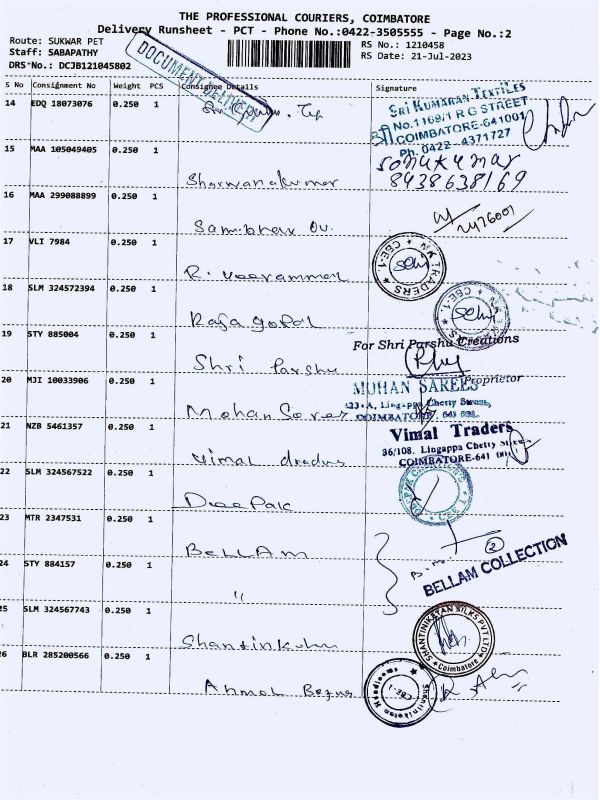 THE PROFESSIONAL COURIERS, COIMBATORE
Delivery Runsheet - PCT - Phone No.:0422-3505555 - Page No.:2
Route: SUKWAR PET
Staff: SABAPATHY
DRS No.: DCJB121045802
RS No.: 1210458
RS Date: 21-Jul-2023
DOCUMENT DELIVERY
S No Consignment No Weight PCS Consignee Details Signature
14 EDQ 18073076 0.250 1
SRI KUMARAN TEXTILES
No.1169/1 R G STREET
COIMBATORE-641001
Ph. 0422-4371727
15 MAA 105049405 0.250 1 Sharwanakumar
Sonukumar
8438638169
16 MAA 299088899 0.250 1 Sambhav
17 VLI 7984 0.250 1 R. Veerammal
TRADERS CBE-1
18 SLM 324572394 0.250 1 Raja gopal
CBE-1
19 STY 885004 0.250 1 Shri Parshu
For Shri Parshu Creations
Proprietor
20 MJI 10033906 0.250 1 Mohan Saree
MOHAN SAREES
123-A, Lingappa Chetty Street,
COIMBATORE
21 NZB 5461357 0.250 1 Vimal
Vimal Traders
36/108. Lingappa Chetty Street
COIMBATORE-641
22 SLM 324567522 0.250 1 Deepak
23 MTR 2347531 0.250 1 Bellam
2
BELLAM COLLECTION
24 STY 884157 0.250 1 "
25 SLM 324567743 0.250 1
SHANTINIKATAN SILKS PVT LTD
Coimbatore
26 BLR 285200566 0.250 1
Shantiniketan
CBE-1